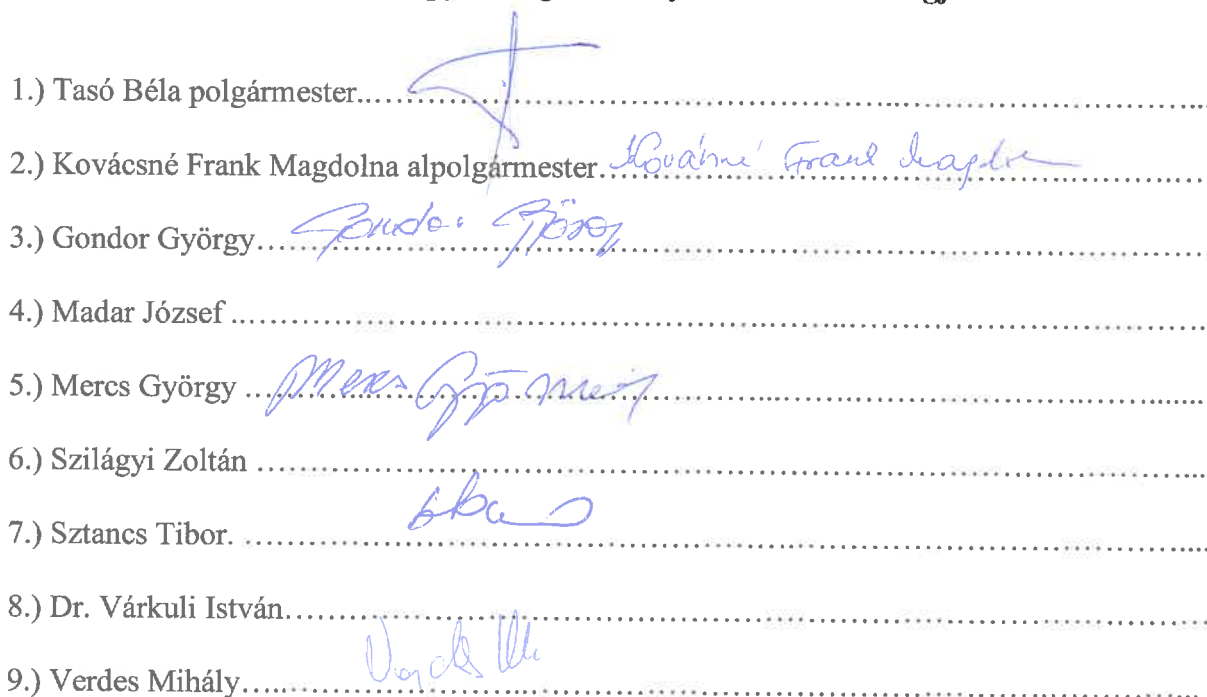 1.) Tasó Béla polgármester
2.) Kovácsné Frank Magdolna alpolgármester Kovácsné Frank Magdolna
3.) Gondor György Gondor György
4.) Madar József
5.) Mercs György Mercs György
6.) Szilágyi Zoltán
7.) Sztancs Tibor.
8.) Dr. Várkuli István
9.) Verdes Mihály